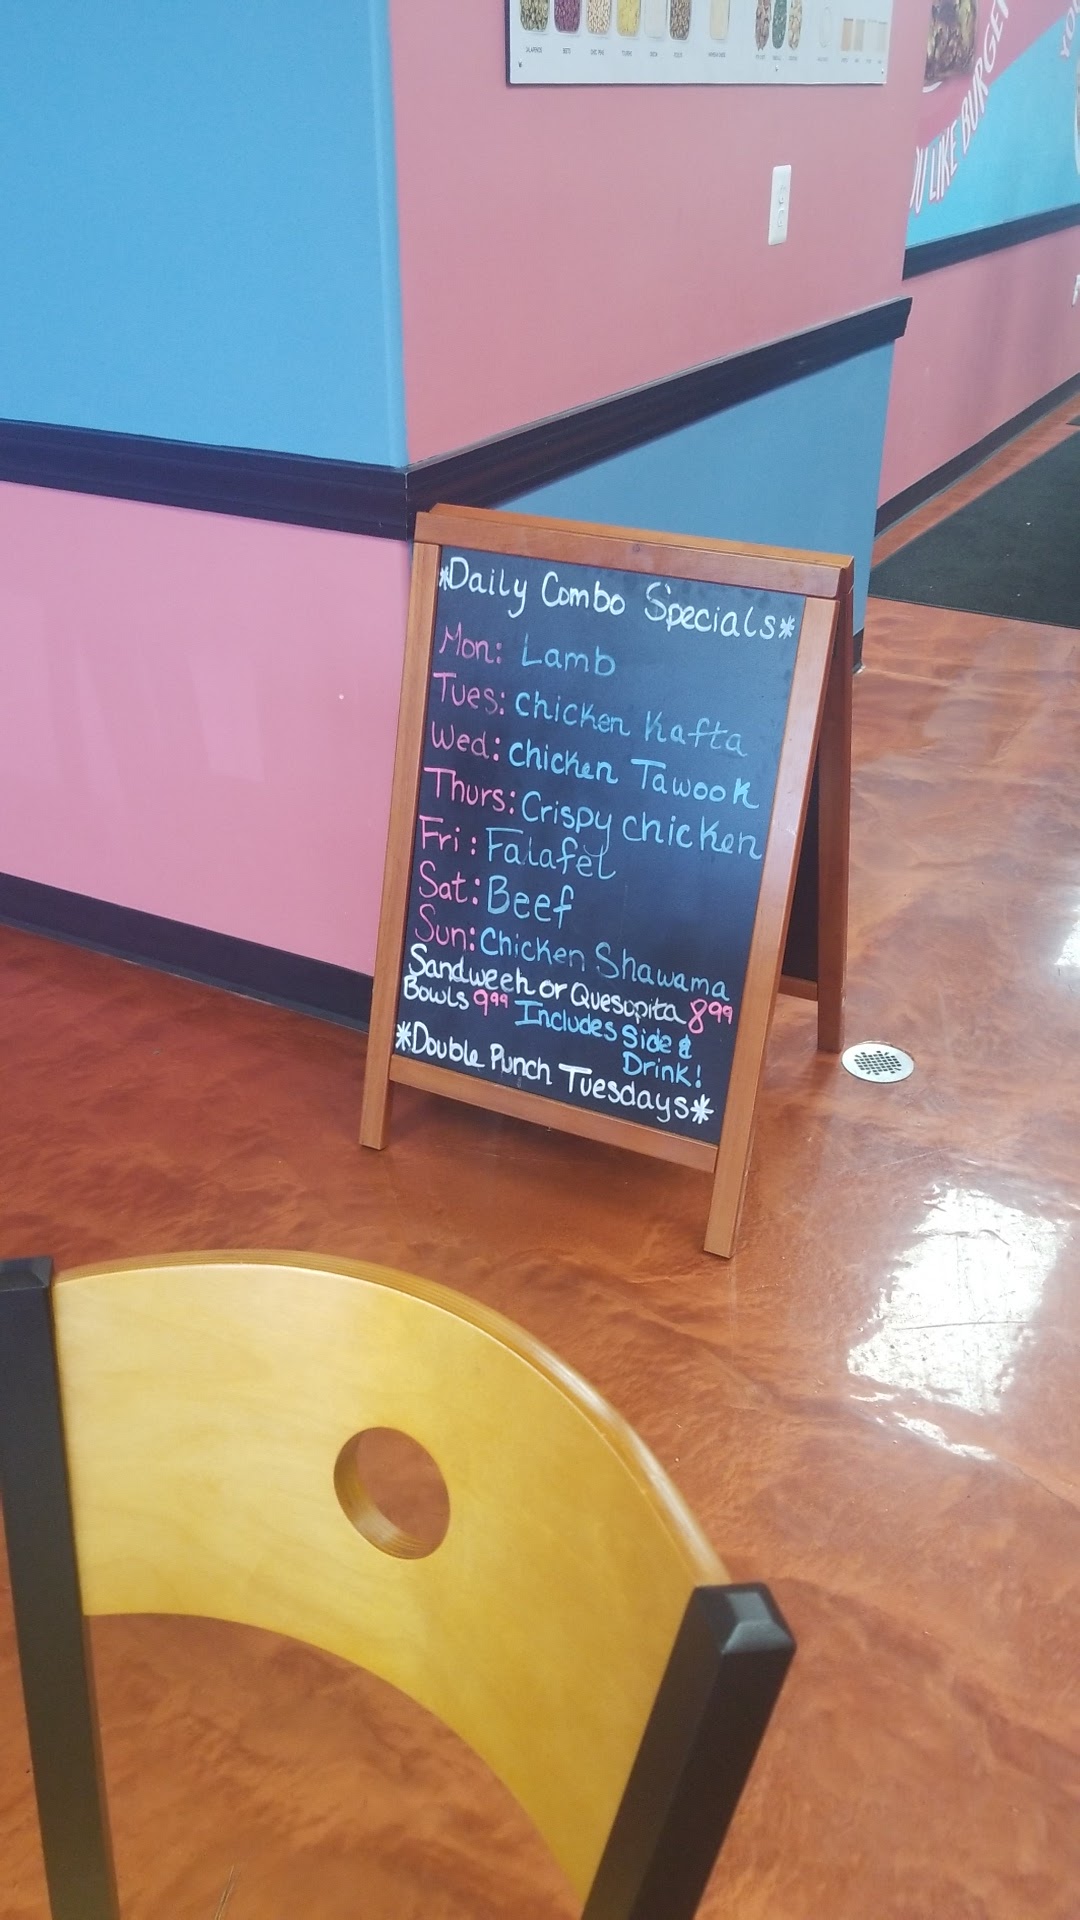 *Daily Combo Specials*
Mon: Lamb
Tues: chicken Kafta
Wed: chicken Tawook
Thurs: Crispy chicken
Fri: Falafel
Sat: Beef
Sun: Chicken Shawama
Sandweeh or Quesopita 8⁹⁹
Bowls 9⁹⁹ Includes Side &
Drink!
*Double Punch Tuesdays*
OU LIKE BURGER